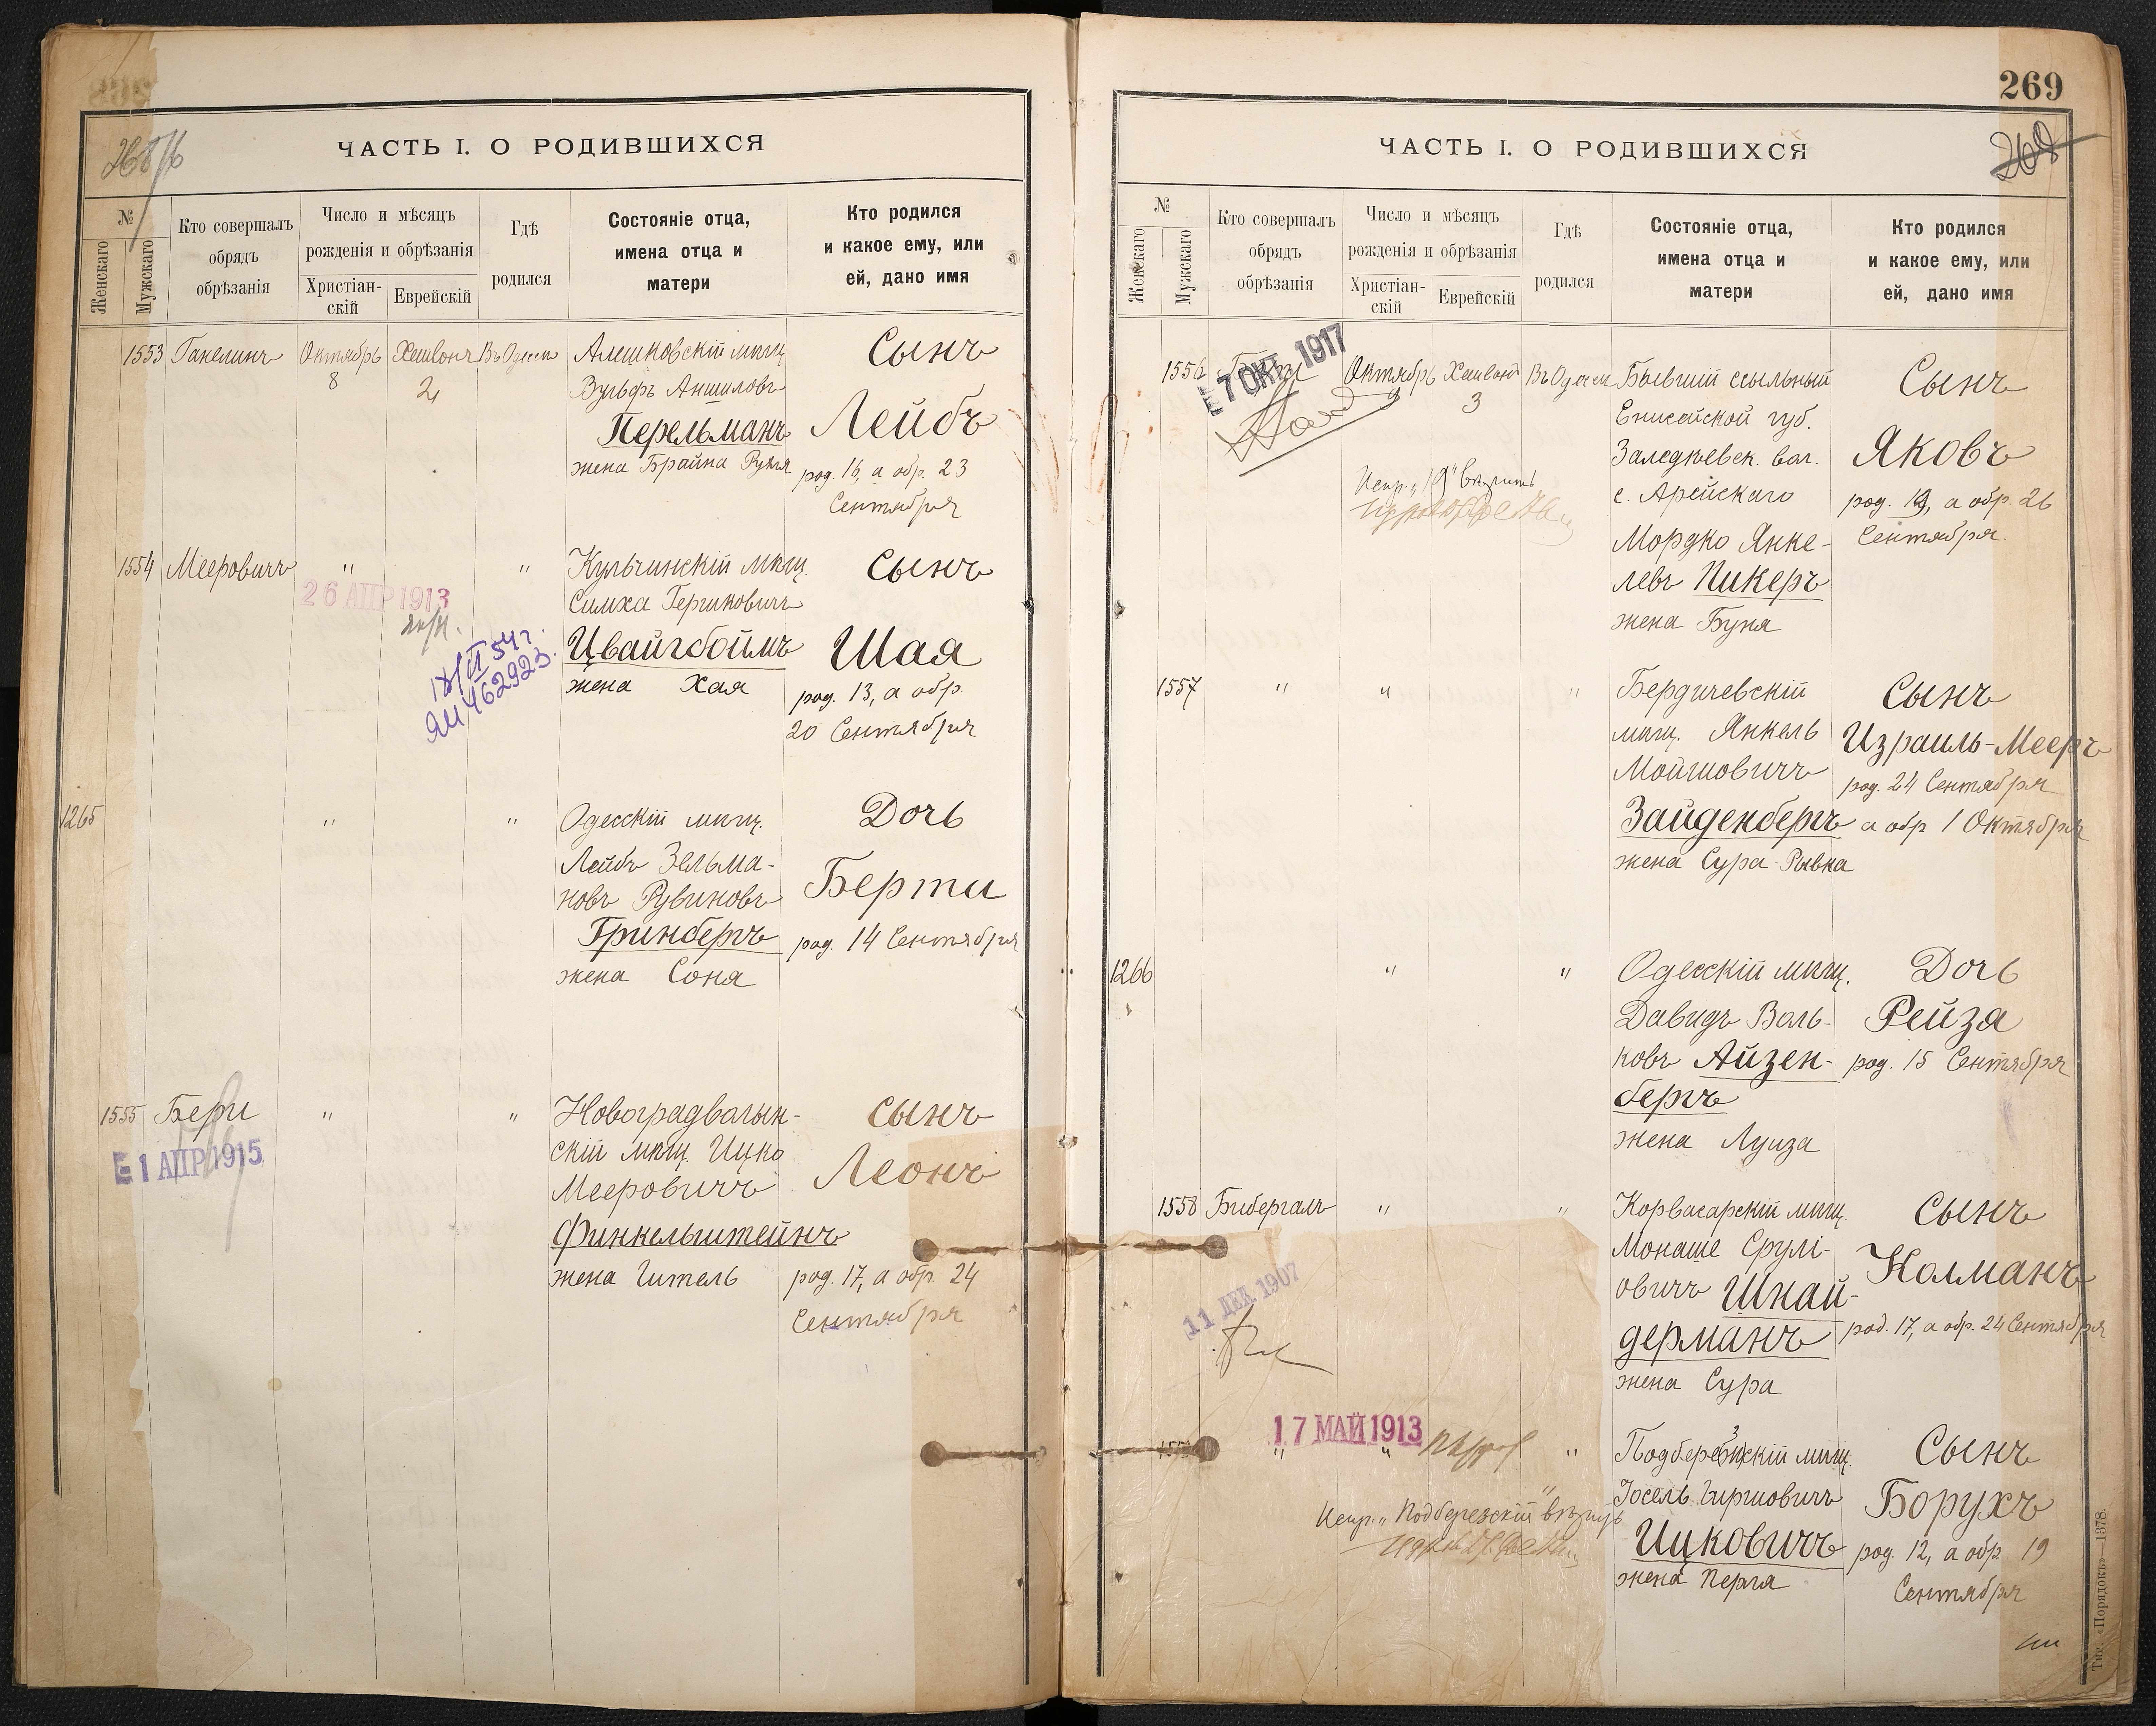 ЧАСТЬ I. О РОДИВШИХСЯ
№
Женскаго
Мужскаго
Кто совершалъ
обрядъ
обрѣзанія
Число и мѣсяцъ
рожденія и обрѣзанія
Христіан-
скій
Еврейскій
Гдѣ
родился
Состояніе отца,
имена отца и
матери
Кто родился
и какое ему, или
ей, дано имя
1553 Ганелинъ Октябрь Хешвонъ Въ Одессѣ Алешковскій мѣщ. Сынъ
8 2
Вульфъ Аншиловъ
Перельманъ Лейбъ
жена Брайна Рухля род. 16, а обр. 23
Сентября
1554 Мееровичъ " " Кульчинскій мѣщ. Сынъ
26 АПР 1913
Симха Гершковичъ
Цвайгбоймъ Шая
жена Хая род. 13, а обр.
20 Сентября
ЯИ 462923.
1265 " " Одесскій мѣщ. Дочь
Лейбъ Зельма-
новъ Рувиновъ Берта
Гринбергъ род. 14 Сентября
жена Соня
1555 Бери " " Новоградволын- Сынъ
1 АПР 1915
скій мѣщ. Ицко
Мееровичъ Леонъ
Финкельштейнъ
жена Гитель род. 17, а обр. 24
Сентября
269
ЧАСТЬ I. О РОДИВШИХСЯ
№
Женскаго
Мужскаго
Кто совершалъ
обрядъ
обрѣзанія
Число и мѣсяцъ
рожденія и обрѣзанія
Христіан-
скій
Еврейскій
Гдѣ
родился
Состояніе отца,
имена отца и
матери
Кто родился
и какое ему, или
ей, дано имя
7 ОКТ 1917
1556 Октябрь Хешвонъ Въ Одессѣ Бывшій ссыльный Сынъ
9 3
Енисейской губ.
Заледѣевск. вол. Яковъ
с. Арейскаго род. 19, а обр. 26
Сентября.
Испр. „19" вѣрить
Мордко Янке-
левъ Пикеръ
жена Буня
1557 " " " Бердичевскій Сынъ
мѣщ. Янкель Израиль-Мееръ
Мойшовичъ род. 24 Сентября
Зайденбергъ а обр 1 Октября
жена Сура-Рывка
1266 " " Одесскій мѣщ. Дочь
Давидъ Воль- Рейза
ковъ Айзен- род. 15 Сентября
бергъ
жена Луиза
1558 Бибергалъ " " Корвасарскій мѣщ. Сынъ
Монаше Срулі-
овичъ Шнай- Колманъ
11 ДЕК 1907
дерманъ род. 17, а обр. 24 Сентября
жена Сура
17 МАЙ 1913
" " " Подберезскій мѣщ. Сынъ
Іосель Гиршовичъ Борухъ
Испр. „Подберезскій" вѣрить
Ицковичъ род. 12, а обр. 19
жена Перля Сентября
Тип. «Порядокъ»—1378.